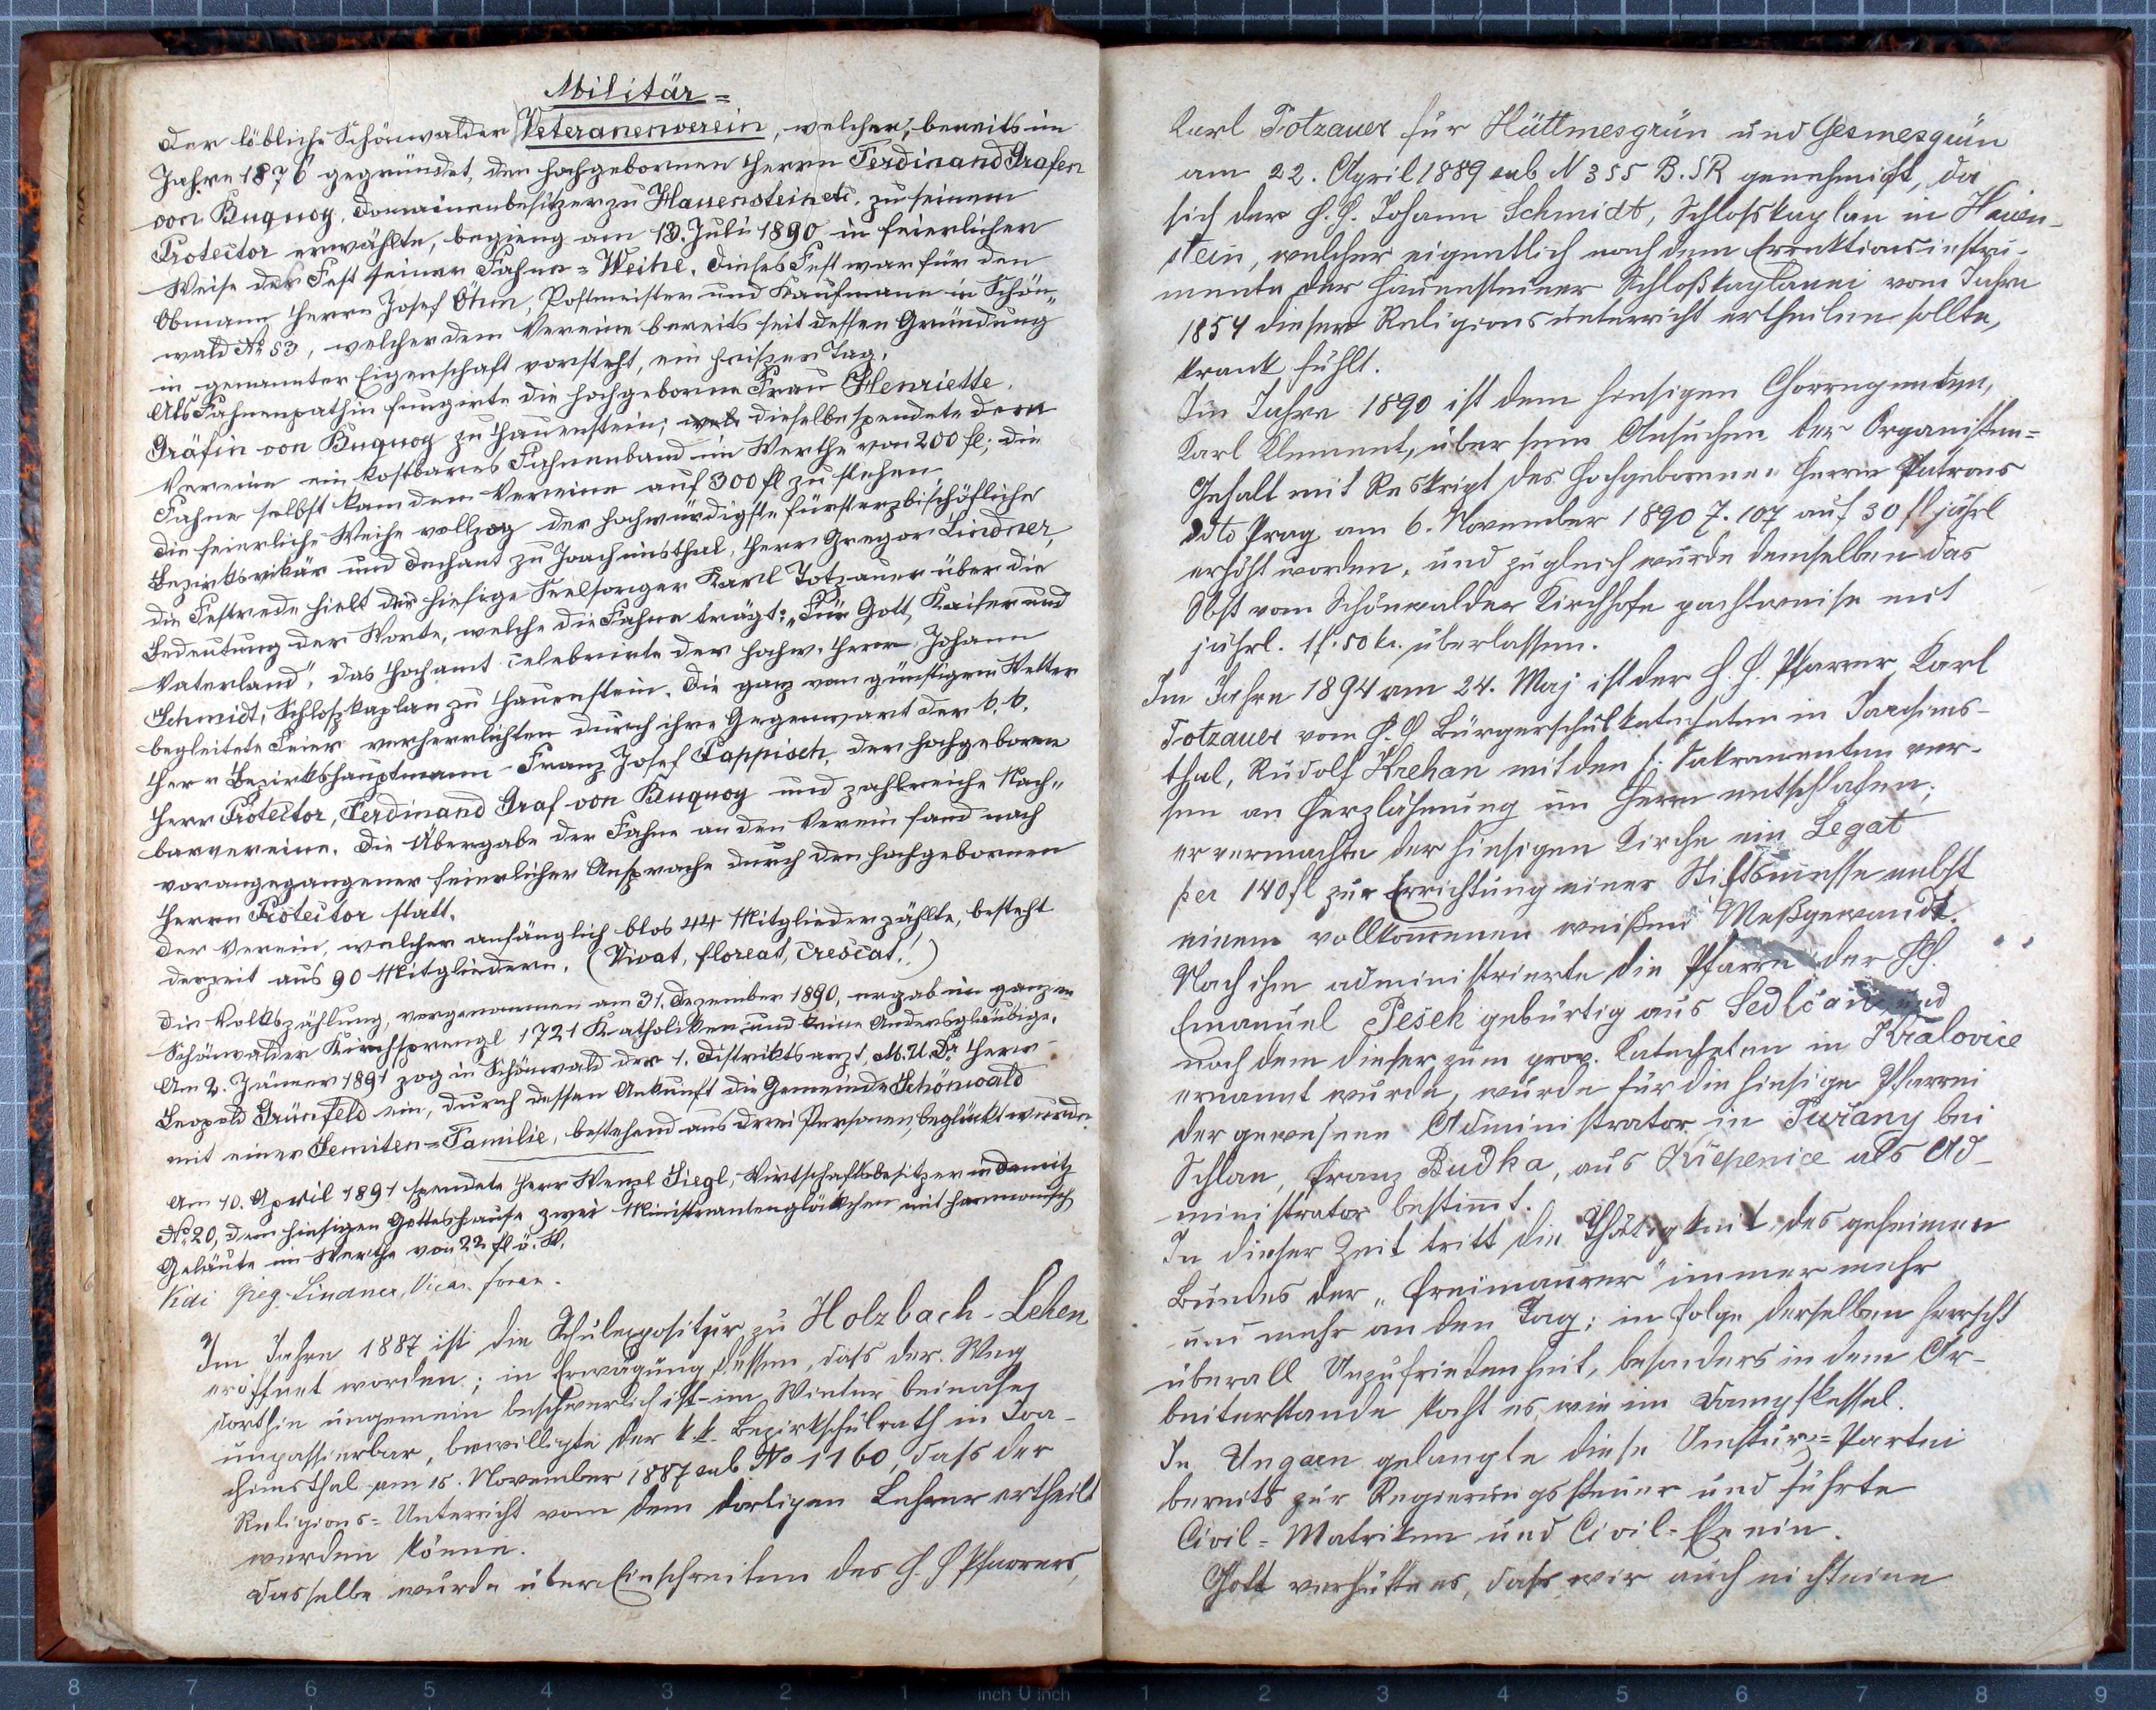 Militär=
Der löbliche Schönwalder Veteranenverein, welcher, bereits im
Jahre 1876 gegründet, den hochgebornen Herrn Ferdinand Grafen
von Buquoy, Domainenbesitzer zu Hauenstein etc. zu seinem
Protector erwählte, begieng am 13. Juli 1890 in feierlicher
Weise das Fest seiner Fahne=Weihe. Dieses Fest war für den
Obmann Herrn Josef Öhm, Postmeister und Kaufmann in Schön„
wald No 53, welcher dem Vereine bereits seit dessen Gründung
in genannter Eigenschaft vorsteht, ein heißer Tag.
Als Fahnenpathin fungerte die hochgeborne Frau Henriette
Gräfin von Buquoy zu Hauenstein; dieselbe spendete dem
Vereine ein kostbares Fahnenband im Werthe von 200 fl; die
Fahne selbst kam dem Vereine auf 300 fl zu stehen.
Die feierliche Weihe vollzog der hochwürdigste fürsterzbischöfliche
Bezirksvikär und Dechant zu Joachimsthal, Herr Gregor Lindner,
die Festrede hielt der hiesige Seelsorger Karl Totzauer über die
Bedeutung der Worte, welche die Fahne trägt: „Für Gott, Kaiser und
Vaterland“. Das Hochamt celebrirte der hochw. Herr Johann
Schmidt, Schloßkaplan zu Hauenstein. Die ganz vom günstigen Wetter
begleitete Feier verherrlichten durch ihre Gegenwart der k. k.
Herr Bezirkshauptmann Franz Josef Pappisch, der hochgeborne
Herr Protector, Ferdinand Graf von Buquoy und zahlreiche Nach„
barvereine. Die Übergabe der Fahne an den Verein fand nach
vorangegangener feierlicher Ansprache durch den hochgebornen
Herrn Protector statt.
Der Verein, welcher anfänglich blos 44 Mitglieder zählte, besteht
derzeit aus 90 Mitgliedern. (Vivat, floreat, crescat!)
Die Volkszählung, vorgenommen am 31. Dezember 1890, ergab im ganzen
Schönwalder Kirchsprengl 1721 Katholiken und keine Andersgläubige.
Am 2. Jänner 1891 zog in Schönwald der 1. Distriktsarzt, M. U. Dr. Herr
Leopold Grünfeld ein, durch dessen Ankunft die Gemeinde Schönwald
mit einer Semiten=Familie, bestehend aus drei Personen, beglückt wurde.
Am 10. April 1891 spendete Herr Wenzl Siegl, Wirtschaftsbesitzer in Damitz
No 20, dem hiesigen Gotteshause zwei Ministrantenglöckchen mit harmonisch
Geläute im Werthe von 22 fl ö. W.
Vidi Greg. Lindner, Vicar. foran.
Im Jahre 1887 ist die Schulexpositur zu Holzbach-Lehen
eröffnet worden; in Erwägung dessen, dass der Weg
dorthin ungemein beschwerlich ist – im Winter beinahe
unpassierbar, bewilligte der k k. Bezirkschulrath in Joa-
chimsthal am 15. November 1887 sub No 1160, dass der
Religions=Unterricht vom dem dortigen Lehrer ertheilt
werden könne.
Dasselbe wurde über Einschreiten des H. H Pfarrers,
Karl Totzauer für Hüttmesgrün und Gesmesgrün
am 22. April 1889 sub N 355 B. SR genehmigt, da
sich der H. H. Johann Schmidt, Schlosskaplan in Hauen-
stein, welcher eigentlich nach dem Erecktionsinstru-
mente der Hauensteiner Schloßkaplanei vom Jahre
1854 diesen Religionsunterricht ertheilen sollte,
krank fühlt.
Im Jahre 1890 ist dem hiesigen Chorregenten,
Karl Klement, über sein Ansuchen der Organisten=
Gehalt mit Reskript des hochgebornen Herrn Patrons
ddto Prag am 6. November 1890 Z. 107 auf 30 fl jährl
erhöht worden, und zugleich wurde demselben das
Obst vom Schönwalder Kirchhofe pachtweise mit
jährl. 1 f. 50 kr. überlassen.
Im Jahre 1894 am 24. Maj ist der H. H. Pfarrer Karl
Totzauer vom H. H Bürgerschulkatecheten in Joachims-
thal, Rudolf Krehan mit den h. Sakramenten ver-
sen an Herzlähmung im Herrn entschlafen;
er vermachte der hiesigen Kirche ein Legat
per 140 fl zur Errichtung einer Stiftsmesse nebst
einem vollkommenen weißen Meßgewandt.
Nach ihm administrierte die Pfarre der HH.
Emanuel Pešek gebürtig aus Sedlčan und
nach dem dieser zum prov. Katecheten in Kralovice
ernannt wurde, wurde für die hiesige Pfarrei
der gewesene Administrator in Tuřany bei
Schlan, Franz Budka, aus Křepenice als Ad-
ministrator bestimmt.
In dieser Zeit tritt die Thätigkeit des geheimen
Bundes der „Freimaurer“ immer mehr
und mehr an den Tag; in folge derselben herrscht
überall Unzufriedenheit, besonders in dem Ar-
beiterstande kocht es, wie im Dampfkessel.
In Ungarn gelangte diese Umsturz=Partei
bereits zur Regierungssteuer und führte
Civil=Matriken und Civil-Ehe ein.
Gott verhütte es, dass wir auch nicht eine